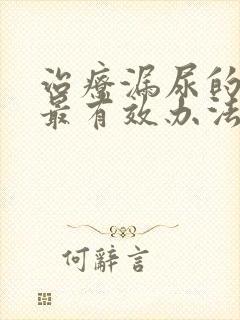 治疗漏尿的
最有效办法
何辞言